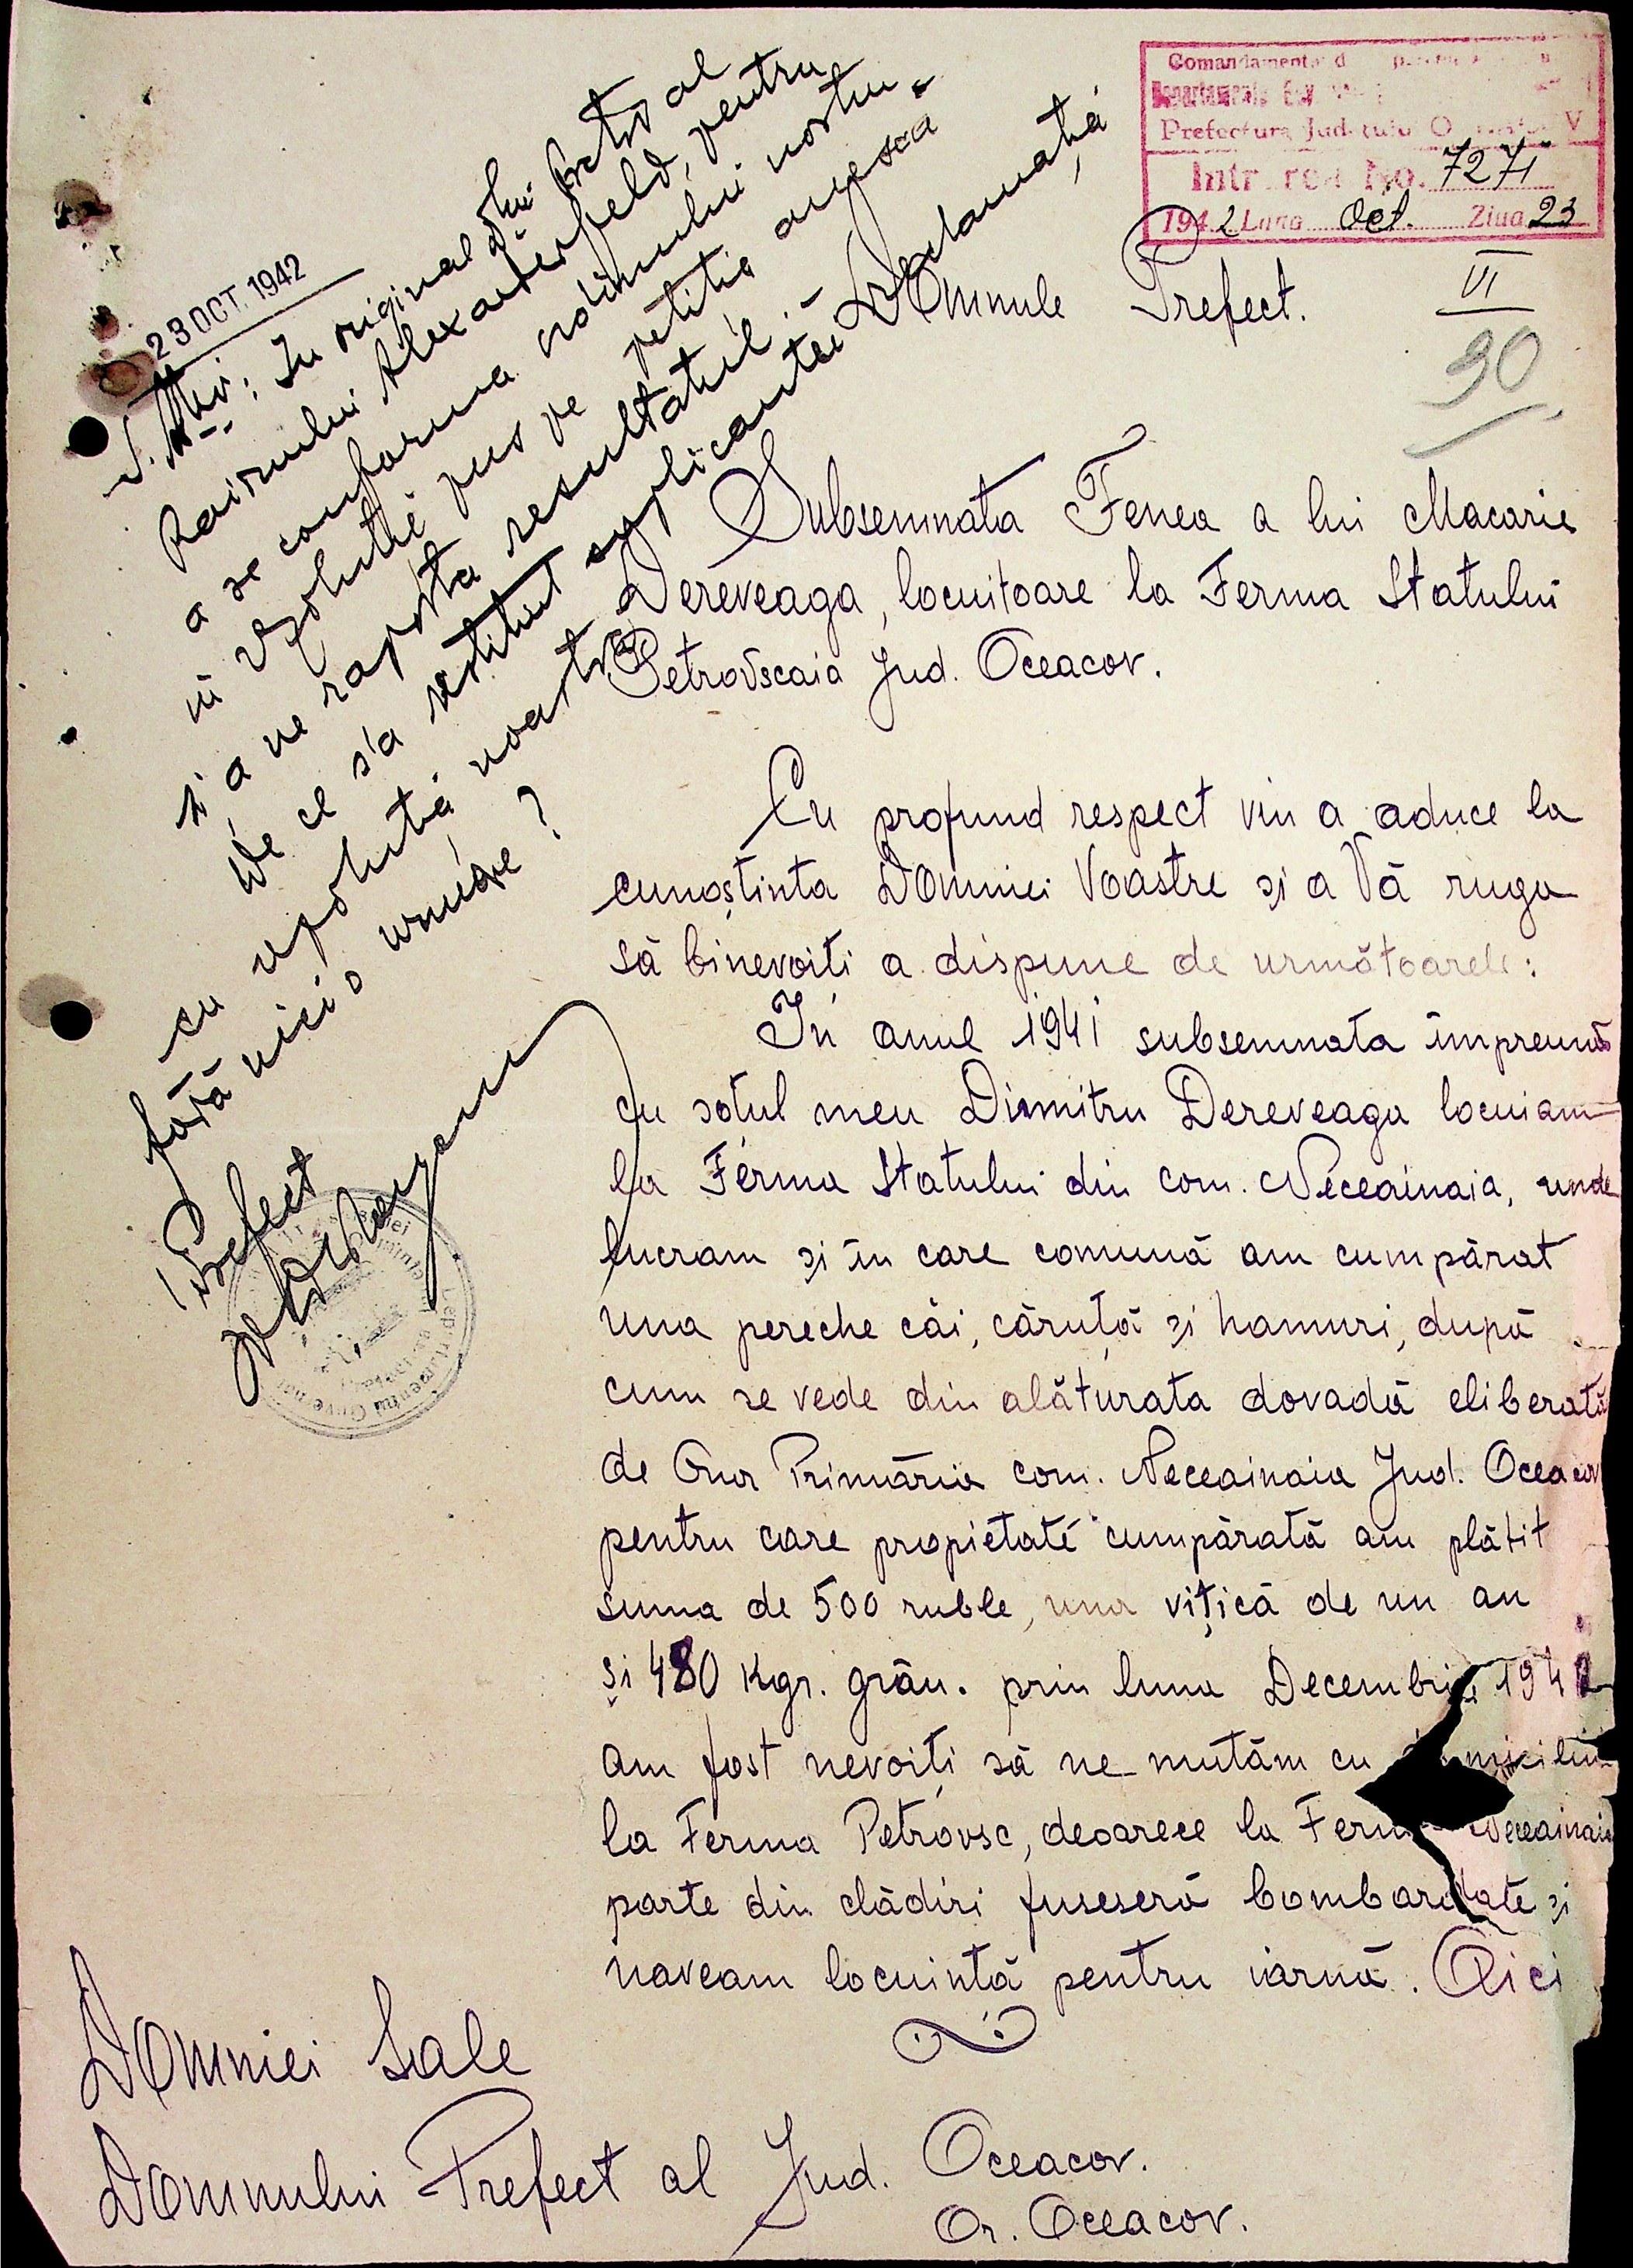 Prefectura Județului O
Intrarea No. 7271
1942 Luna Oct. Ziua 23
VI
90
23 OCT. 1942
In original Dlui Pretor al
Raionului Alexanderfeld, pentru
a se conforma ordinului nostru
in rezoluție pus pe petiția anexa
și a ne raporta resultatul. –
De ce s'a restituit suplicantei reclamația
cu rezoluția noastră
fără nici o urmare?
Prefect
Domnule Prefect.
Subsemnata Fenea a lui Macarie
Dereveaga, locuitoare la Ferma Statului
Petrovscaia Jud. Oceacov.
Cu profund respect vin a aduce la
cunoștinta Domniei Voastre și a Vă ruga
să binevoiți a dispune de următoarele:
In anul 1941 subsemnata împreună
cu soțul meu Dimitru Dereveaga locuiam
la Ferma Statului din com. Neceainaia, unde
lucram și în care comună am cumpărat
una pereche căi, căruță și hamuri, după
cum se vede din alăturata dovadă eliberată
de Onor Primăria com. Neceainaia Jud. Oceacov
pentru care propietate cumpărată am plătit
suma de 500 ruble, una vițică de un an
și 480 kgr. grâu. prin luna Decembrie 1941
am fost nevoiți să ne mutăm cu domiciliu
la Ferma Petrovsc, deoarece la Ferma Neceainaia
parte din clădiri fuseseră bombardate și
naveam locuință pentru iarnă. Aici
Domniei Sale
Domnului Prefect al Jud. Oceacov.
Or. Oceacov.